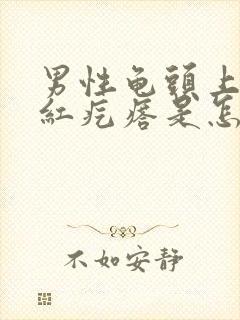 男性龟頭上
紅疙瘩是怎
不如安静